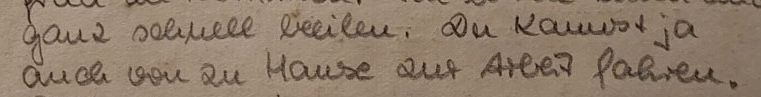 ganz schnell beeilen. Du kannst ja
auch von zu Hause zur Arbeit fahren.